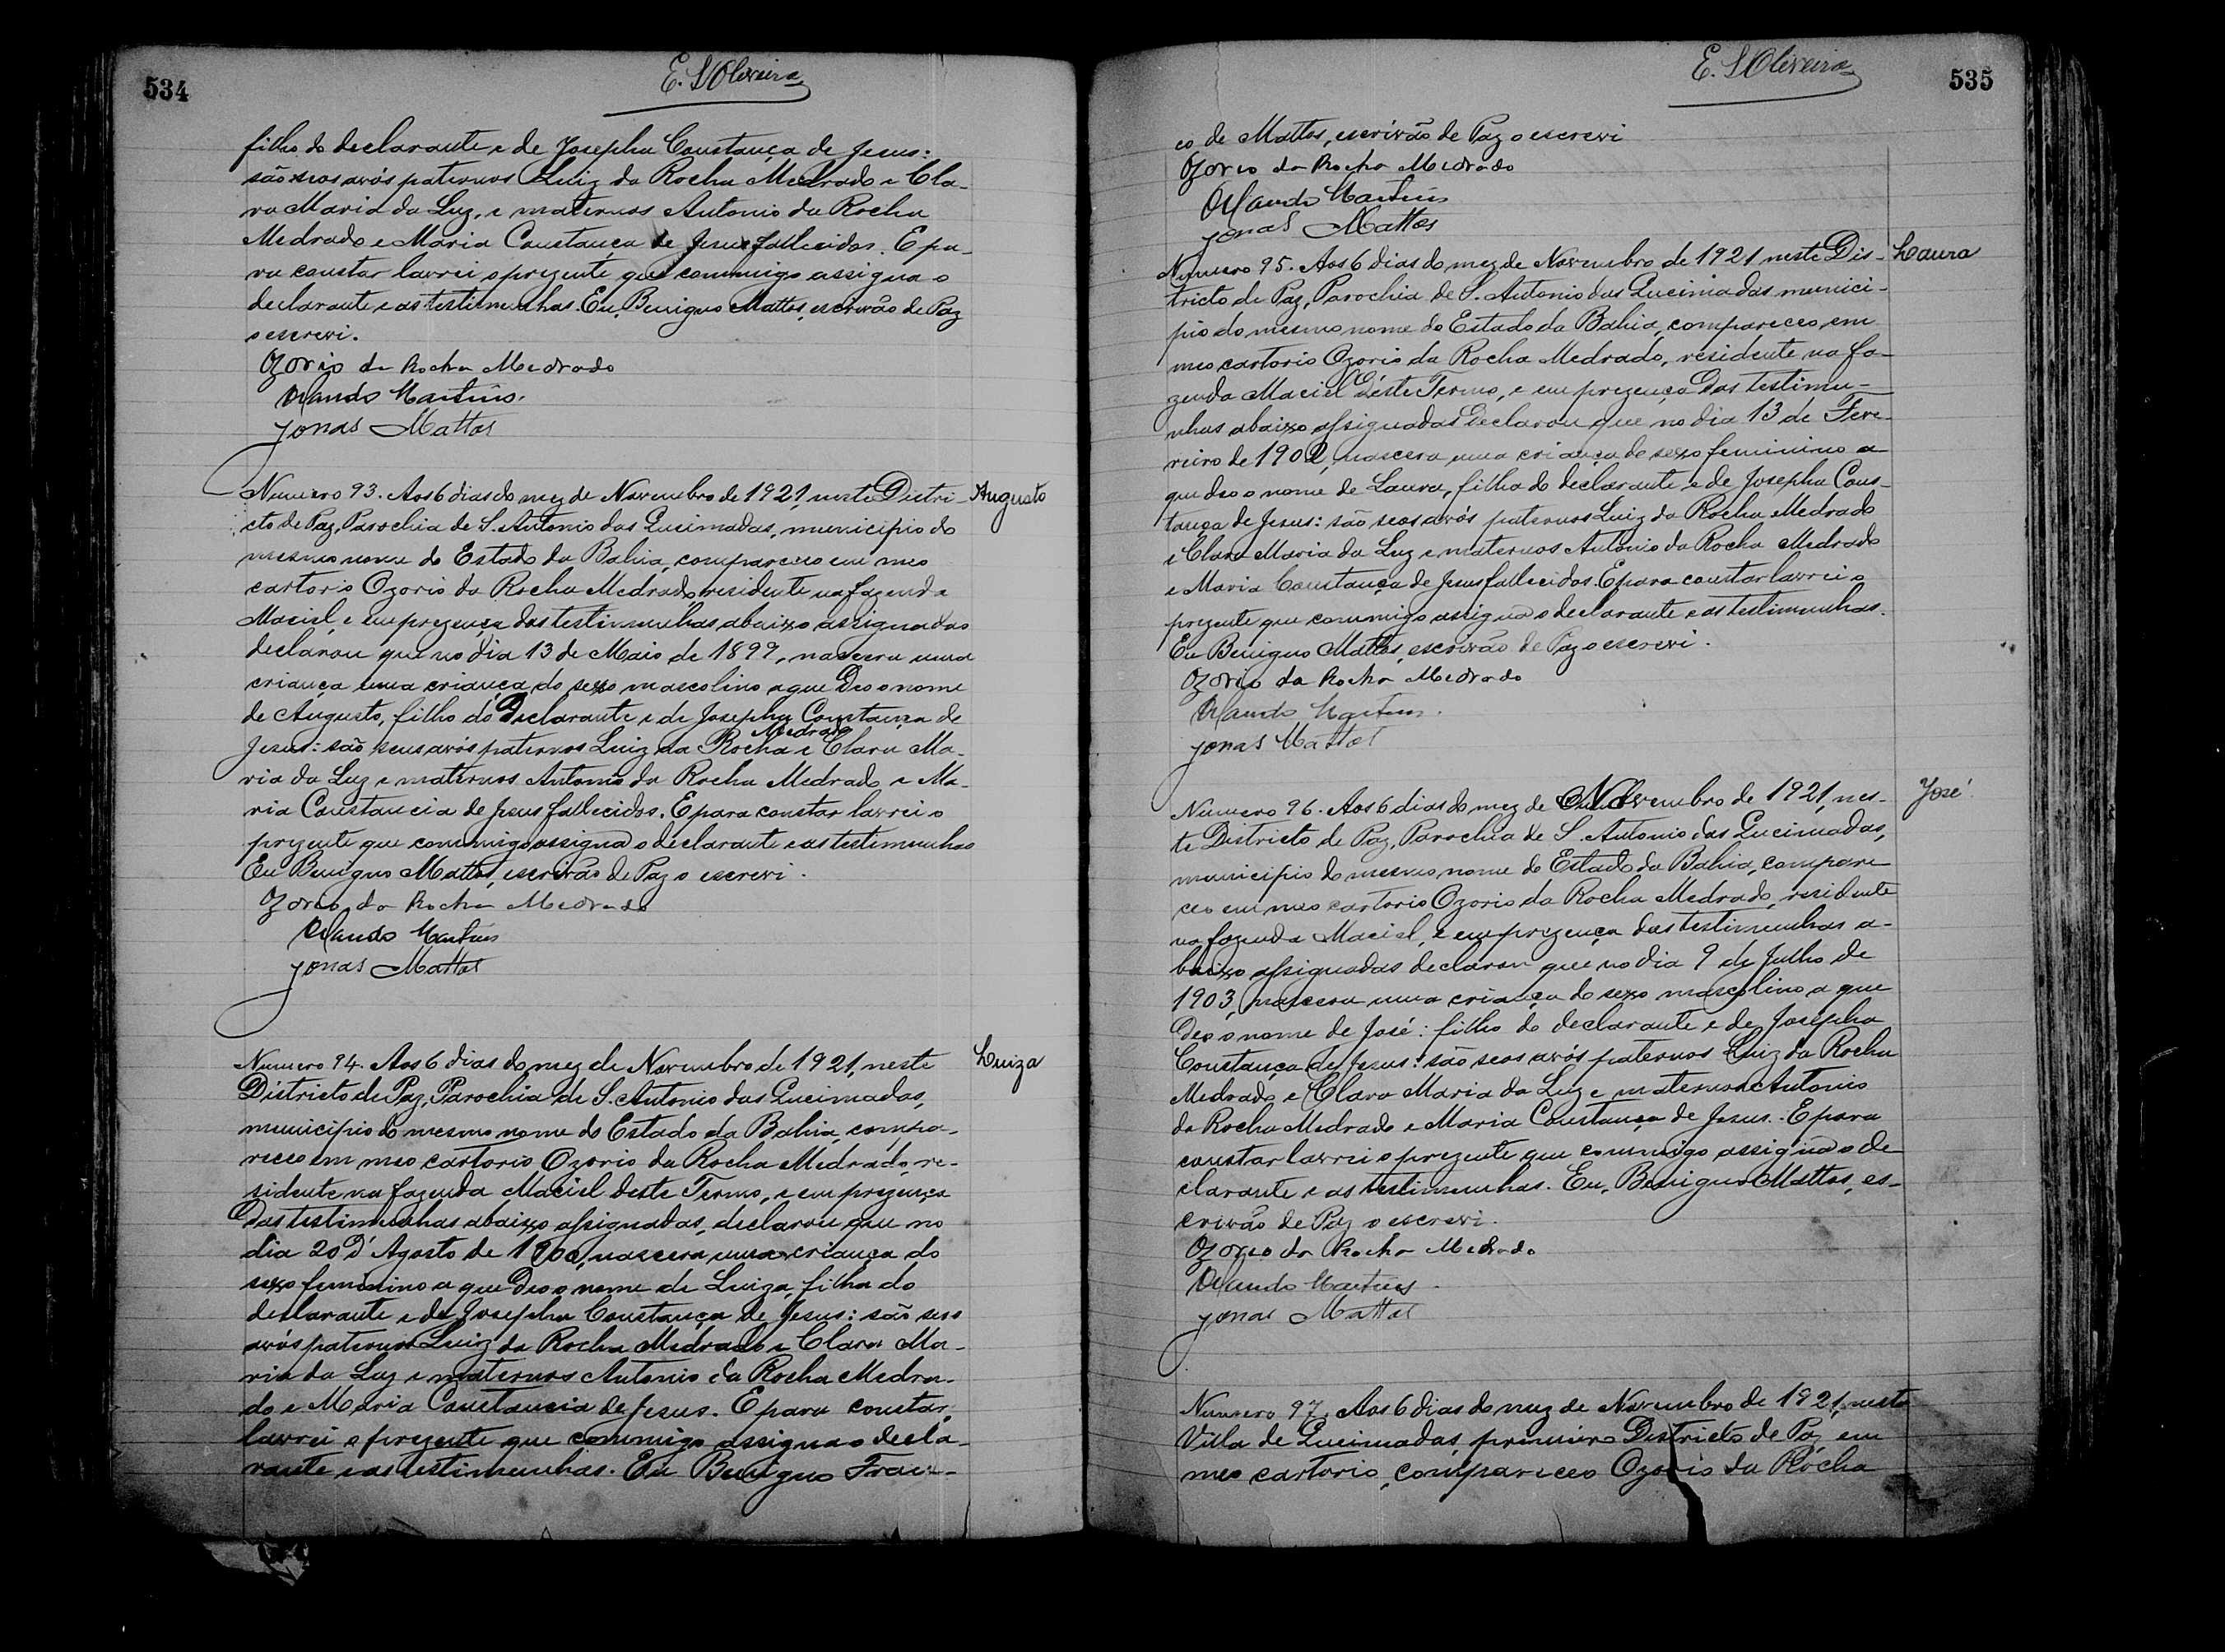 534
E. S. Oliveira
filho do declarante e de Josepha Constança de Jesus:
são seos avós paternos Luiz da Rocha Medrado e Cla-
ra Maria da Luz, e maternos Antonio da Rocha
Medrado e Maria Constança de Jesus fallecidos. E pa-
ra constar lavrei o prezente que commigo assigna o
declarante e as testimunhas. Eu, Benigno Mattos, escrivão de Paz
o escrevi.
Ozorio da Rocha Medrado
Orlando Martins.
Jonas Mattos
Numero 93. Aos 6 dias do mez de Novembro de 1921, neste Distri-
Augusto
cto de Paz, Parochia de S. Antonio das Queimadas, municipio do
mesmo nome do Estado da Bahia, compareceo em meo
cartorio Ozorio da Rocha Medrado residente na fazenda
Maciel, e em prezença das testimunhas abaixo assignadas
declarou que no dia 13 de Maio de 1899, nascera uma
criança uma criança do sexo mascolino a que Deo o nome
de Augusto, filho do Declarante e de Josepha Constança de
Jesus: são seus avós paternos Luiz da Rocha Medrado e Clara Ma-
ria da Luz e maternos Antonio da Rocha Medrado e Ma-
ria Constancia de Jesus fallecidos. E para constar lavrei o
prezente que commigo assigna o declarante e as testimunhas
Eu Benigno Mattos, escrivão de Paz o escrevi.
Ozorio da Rocha Medrado
Orlando Martins
Jonas Mattos
Numero 94. Aos 6 dias do mez de Novembro de 1921, neste
Luiza
Districto de Paz, Parochia de S. Antonio das Queimadas,
municipio do mesmo nome do Estado da Bahia, compa-
receo em meo cartorio Ozorio da Rocha Medrado, re-
sidente na fazenda Maciel deste Termo, e em prezença
Das testimunhas abaixo assignadas, declarou que no
dia 20 D'Agosto de 1900, nascera uma criança do
sexo feminino a que Deo o nome de Luiza, filha do
declarante e de Josepha Constança de Jesus: são seos
avós paternos Luiz da Rocha Medrado e Clara Ma-
ria da Luz e maternos Antonio da Rocha Medra-
do e Maria Constancia de Jesus. E para constar,
lavrei o prezente que commigo assigna o decla-
rante e as testimunhas. Eu Benigno Fran-
E. S. Oliveira
535
co de Mattos, escrivão de Paz o escrevi
Ozorio da Rocha Medrado
Orlando Martins
Jonas Mattos
Numero 95. Aos 6 dias do mez de Novembro de 1921 neste Dis-
Laura
tricto de Paz, Parochia de S. Antonio das Queimadas munici-
pio do mesmo nome do Estado da Bahia, compareceo, em
meo cartorio Ozorio da Rocha Medrado, residente na fa-
zenda Maciel deste Termo, e em prezença Das testimu-
nhas abaixo assignadas Declarou que no dia 13 de Feve-
reiro de 1902, nascera uma criança do sexo feminino a
que deo o nome de Laura, filha do declarante e de Josepha Cons-
tança de Jesus: são seos avós paternos Luiz da Rocha Medrado
e Clara Maria da Luz e maternos Antonio da Rocha Medrado
e Maria Constança de Jesus fallecidos. E para constar lavrei o
prezente que commigo assigna o declarante e as testimunhas.
Eu Benigno Mattos, escrivão de Paz o escrevi.
Ozorio da Rocha Medrado
Orlando Martins.
Jonas Mattos
Numero 96. Aos 6 dias do mez de Novembro de 1921, nes-
José
te Districto de Paz, Parochia de S. Antonio das Queimadas,
municipio do mesmo nome do Estado da Bahia, compare-
ceo em meo cartorio Ozorio da Rocha Medrado, residente
na fazenda Maciel, e em prezença das testimunhas a-
baixo assignadas declarou que no dia 9 de Julho de
1903, nascera uma criança do sexo mascolino a que
Deo o nome de José: filho do declarante e de Josepha
Constança de Jesus: são seos avós paternos Luiz da Rocha
Medrado e Clara Maria da Luz e maternos Antonio
da Rocha Medrado e Maria Constança de Jesus. E para
constar lavrei o prezente que commigo assigna o de-
clarante e as testimunhas. Eu, Benigno Mattos, es-
crivão de Paz o escrevi.
Ozorio da Rocha Medrado
Orlando Martins
Jonas Mattos
Numero 97. Aos 6 dias do mez de Novembro de 1921, nesta
Villa de Queimadas, primeiro Districto de Paz em
meo cartorio, compareceo Ozorio da Rocha